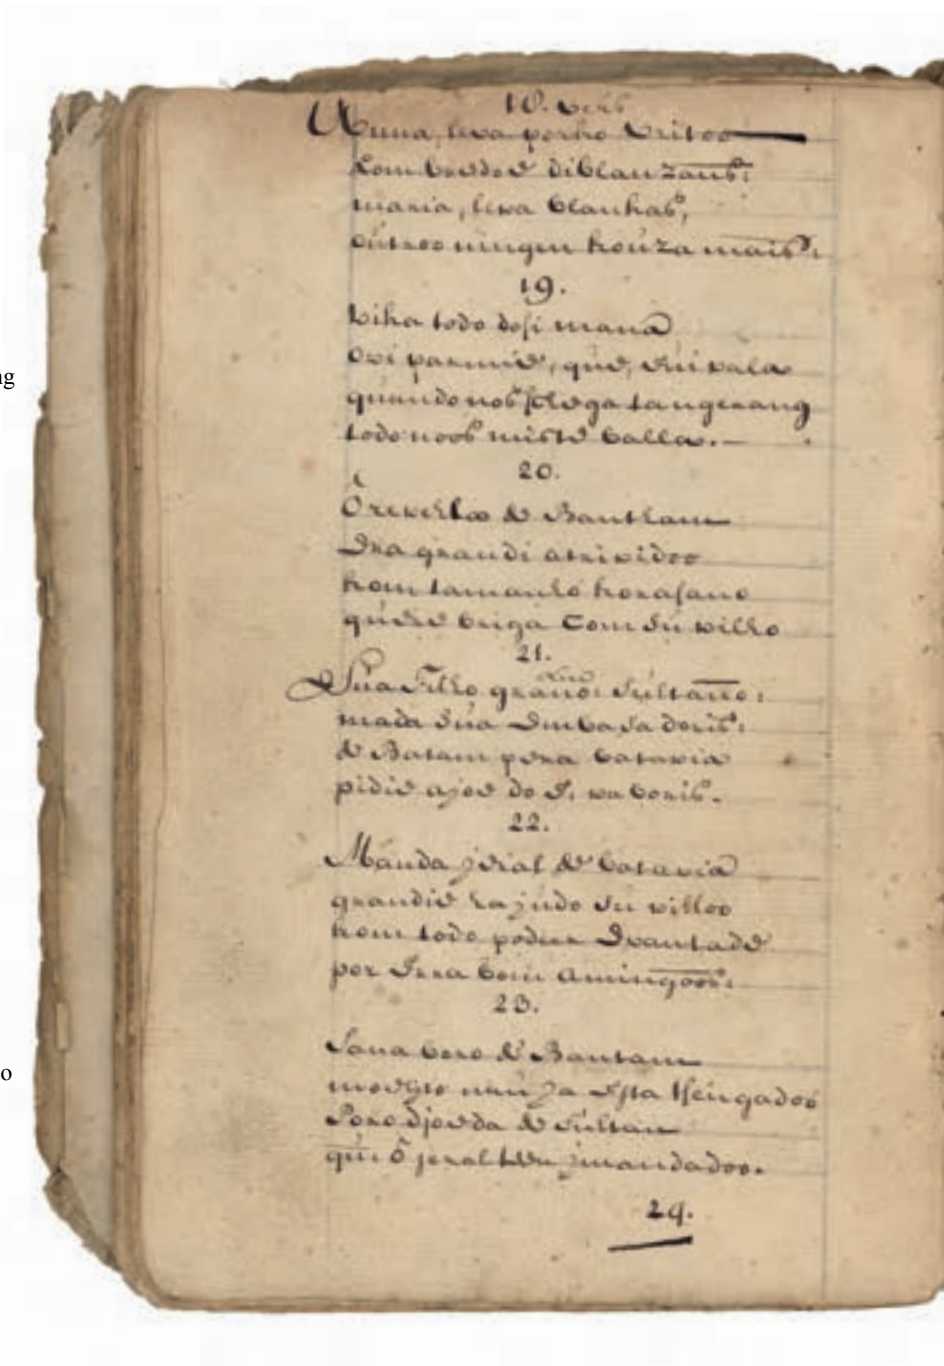 18. vers
Anna, leva porko vritoo
kom bredoe di blanzans:
maria, leva blankas,
outroo ningen kouza mais:
19.
vika todo dosi mana
ovi parmie, que, eui vala
ng
quando nos schega tangerang
todo noos miste balla.
20.
Ô reverkoo de Bantham
Era grandi atrividoo
kom tamanho korasano
quere briga Com su vilho
21.
Sua Filho grano: Sultano:
mada sua Embasadoris:
de Batam pera batavia
pidie ajoe do S. vaboris.
22.
Manda jeral de batavia
grandie rajudo su villoo
kom todo poder Evantade
por Erra bom amingoos:
23.
Sana boro de Bantam
moeyto nau ja esta thengados
Poro djoeda de Sultan
o
qui ô jeral mandadoo.
24.